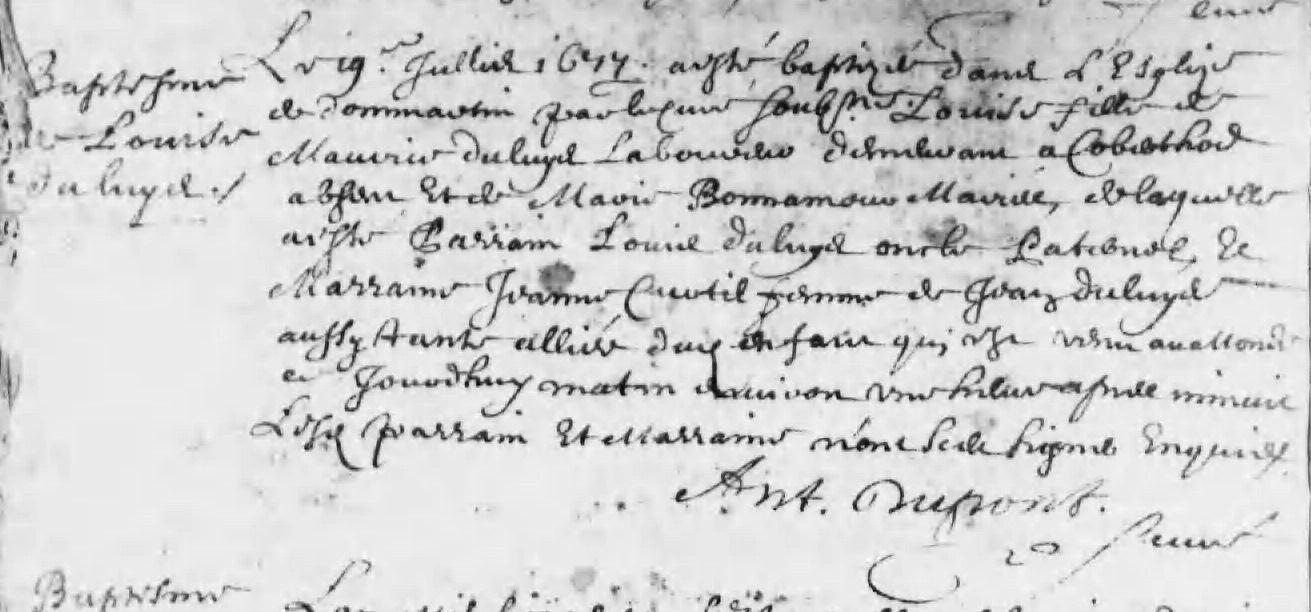 Baptesme
de Louise
duluys ./
Le 19e Juillet 1677. a esté baptizée dans L'Esglise
de dommartin par le Curé soubsne. Louise fille de
Maurice duluys Laboureur demeurant a
absen Et de Marie Bonnamour Mariée, de laquelle
a esté Parrain Louis duluys oncle Paternel, Et
Marraine Jeanne Curtil femme de Jean duluys
aussy tante alliée dud enfant qui Est venu au monde
ce Jourdhuy matin environ une heure apres minuit
Lesd Parrain Et Marraine n'ont sceu signé Enquis
Ant. Dupont.
Curé
Baptesme